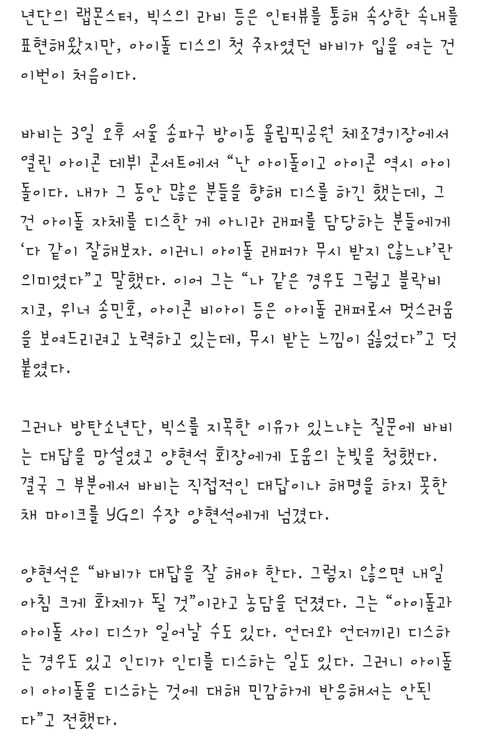 년단의 랩몬스터, 빅스의 라비 등은 인터뷰를 통해 속상한 속내를
표현해왔지만, 아이돌 디스의 첫 주자였던 바비가 입을 여는 건
이번이 처음이다.
바비는 3일 오후 서울 송파구 방이동 올림픽공원 체조경기장에서
열린 아이콘 데뷔 콘서트에서 “난 아이돌이고 아이콘 역시 아이
돌이다. 내가 그 동안 많은 분들을 향해 디스를 하긴 했는데, 그
건 아이돌 자체를 디스한 게 아니라 래퍼를 담당하는 분들에게
‘다 같이 잘해보자. 이러니 아이돌 래퍼가 무시 받지 않느냐’란
의미였다”고 말했다. 이어 그는 “나 같은 경우도 그렇고 블락비
지코, 위너 송민호, 아이콘 비아이 등은 아이돌 래퍼로서 멋스러움
을 보여드리려고 노력하고 있는데, 무시 받는 느낌이 싫었다”고 덧
붙였다.
그러나 방탄소년단, 빅스를 지목한 이유가 있느냐는 질문에 바비
는 대답을 망설였고 양현석 회장에게 도움의 눈빛을 청했다.
결국 그 부분에서 바비는 직접적인 대답이나 해명을 하지 못한
채 마이크를 YG의 수장 양현석에게 넘겼다.
양현석은 “바비가 대답을 잘 해야 한다. 그렇지 않으면 내일
아침 크게 화제가 될 것”이라고 농담을 던졌다. 그는 “아이돌과
아이돌 사이 디스가 일어날 수도 있다. 언더와 언더끼리 디스하
는 경우도 있고 인디가 인디를 디스하는 일도 있다. 그러니 아이돌
이 아이돌을 디스하는 것에 대해 민감하게 반응해서는 안된
다”고 전했다.